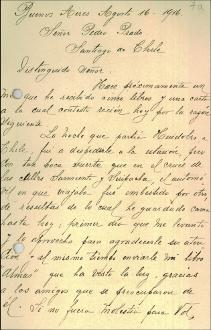 Buenos Aires Agosto 16-1916
Señor Pedro Prado
Santiago de Chile
Distinguido Señor:
Hace próximamente un
mes que he recibido unos libros y una carta
a la cual contesto recién hoy por la razón
siguiente
La noche que partió Huidobro a
Chile, fui a despedirle a la estación, pero
con tan poca suerte que en el cruce de
las calles Sarmiento y Suipacha, el automó
vil en que viajaba, fué embestido por otro,
de resultas de lo cual he guardado cama
hasta hoy; primer día que me levanto
y aprovecho para agradecerle su aten
ción y al mismo tiempo enviarle mi libro
que ha visto la luz, gracias
a los amigos que se preocuparon de
él. Si no fuera molestia para Vd.